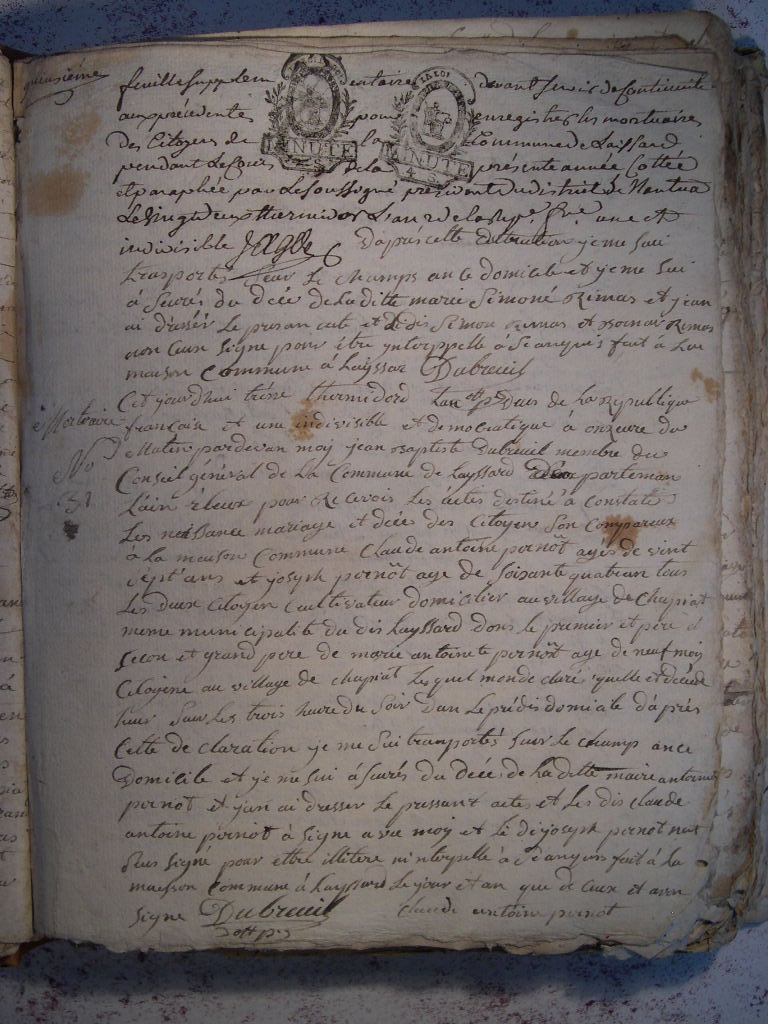 quinsieme
feuille supplem entaire devant servir de continuité
aux précédentes pour enregistrer les mortuaires
Des Citoyens de la Commune de Laissard
pendant le Cours de la présente année Cottée
et paraphée par le Soussigné président du district de Nantua
Le vingt deux thermidor L'an 2 de la Rep. fse. une et
indivisible Jagot
LA LOI
MINUTE
MINUTE
4 S
D'après cette declaration je me sui
trasportés sur le champs an ce domicile et je me sui
à Surés du décé de la ditte marie Simone Rimas et j'ean
ai dressér Le presan acte et Les dis Simon Rimas et Rimas
non Cun Signe pour être ynterppellé à Se anquis fait à La
maison Commune à Layssar Dubreuil
Mortuaire
No
31
Cet jourd'hui trese thermidord Lan Deus de La Republique
françaisse et une indivisible et democratique à onzeure du
Matin pardevan moy jean Baptiste Dubreuil membre du
Conseil général de La Commune de Layssard parteman
L'ain éleux pour Recevois Les actes destiné à Constaté
Les naissance mariage et décée des Citoyen Son Compareux
à la maison Commune Claude antoine pernöt agés de vint
sépt ans et joseph pernöt age de soisante quatran tous
Les deux Citoyen Cultivateur domicilier au village de Chapiat
meme municipalité du dis Layssard dons le premier et pere et
Secon et grand pere de marie antoinete pernöt age de neuf mois
Citoyene au village de chapiat Lesquel monde claré quelle et décéde
hier Sur Les trois heure du Soir dan Le prédis domicile d'après
Cette de claration je me Sui transportés Sur Le champ ance
Domicile et je me sui à Surés du décés de La ditte marie antoine
pernot et j'an ai dresser Le pressant actes et Les dis claude
antoine pernot à Signe avec moy et Le di joseph pernot nat
Pas signé pour ettre illitere ninterpellé à Se anquis fait à La
maison Commune à Layssard Le jour et an que de Cux et avon
Signe Dubreuil claude antoine pernot